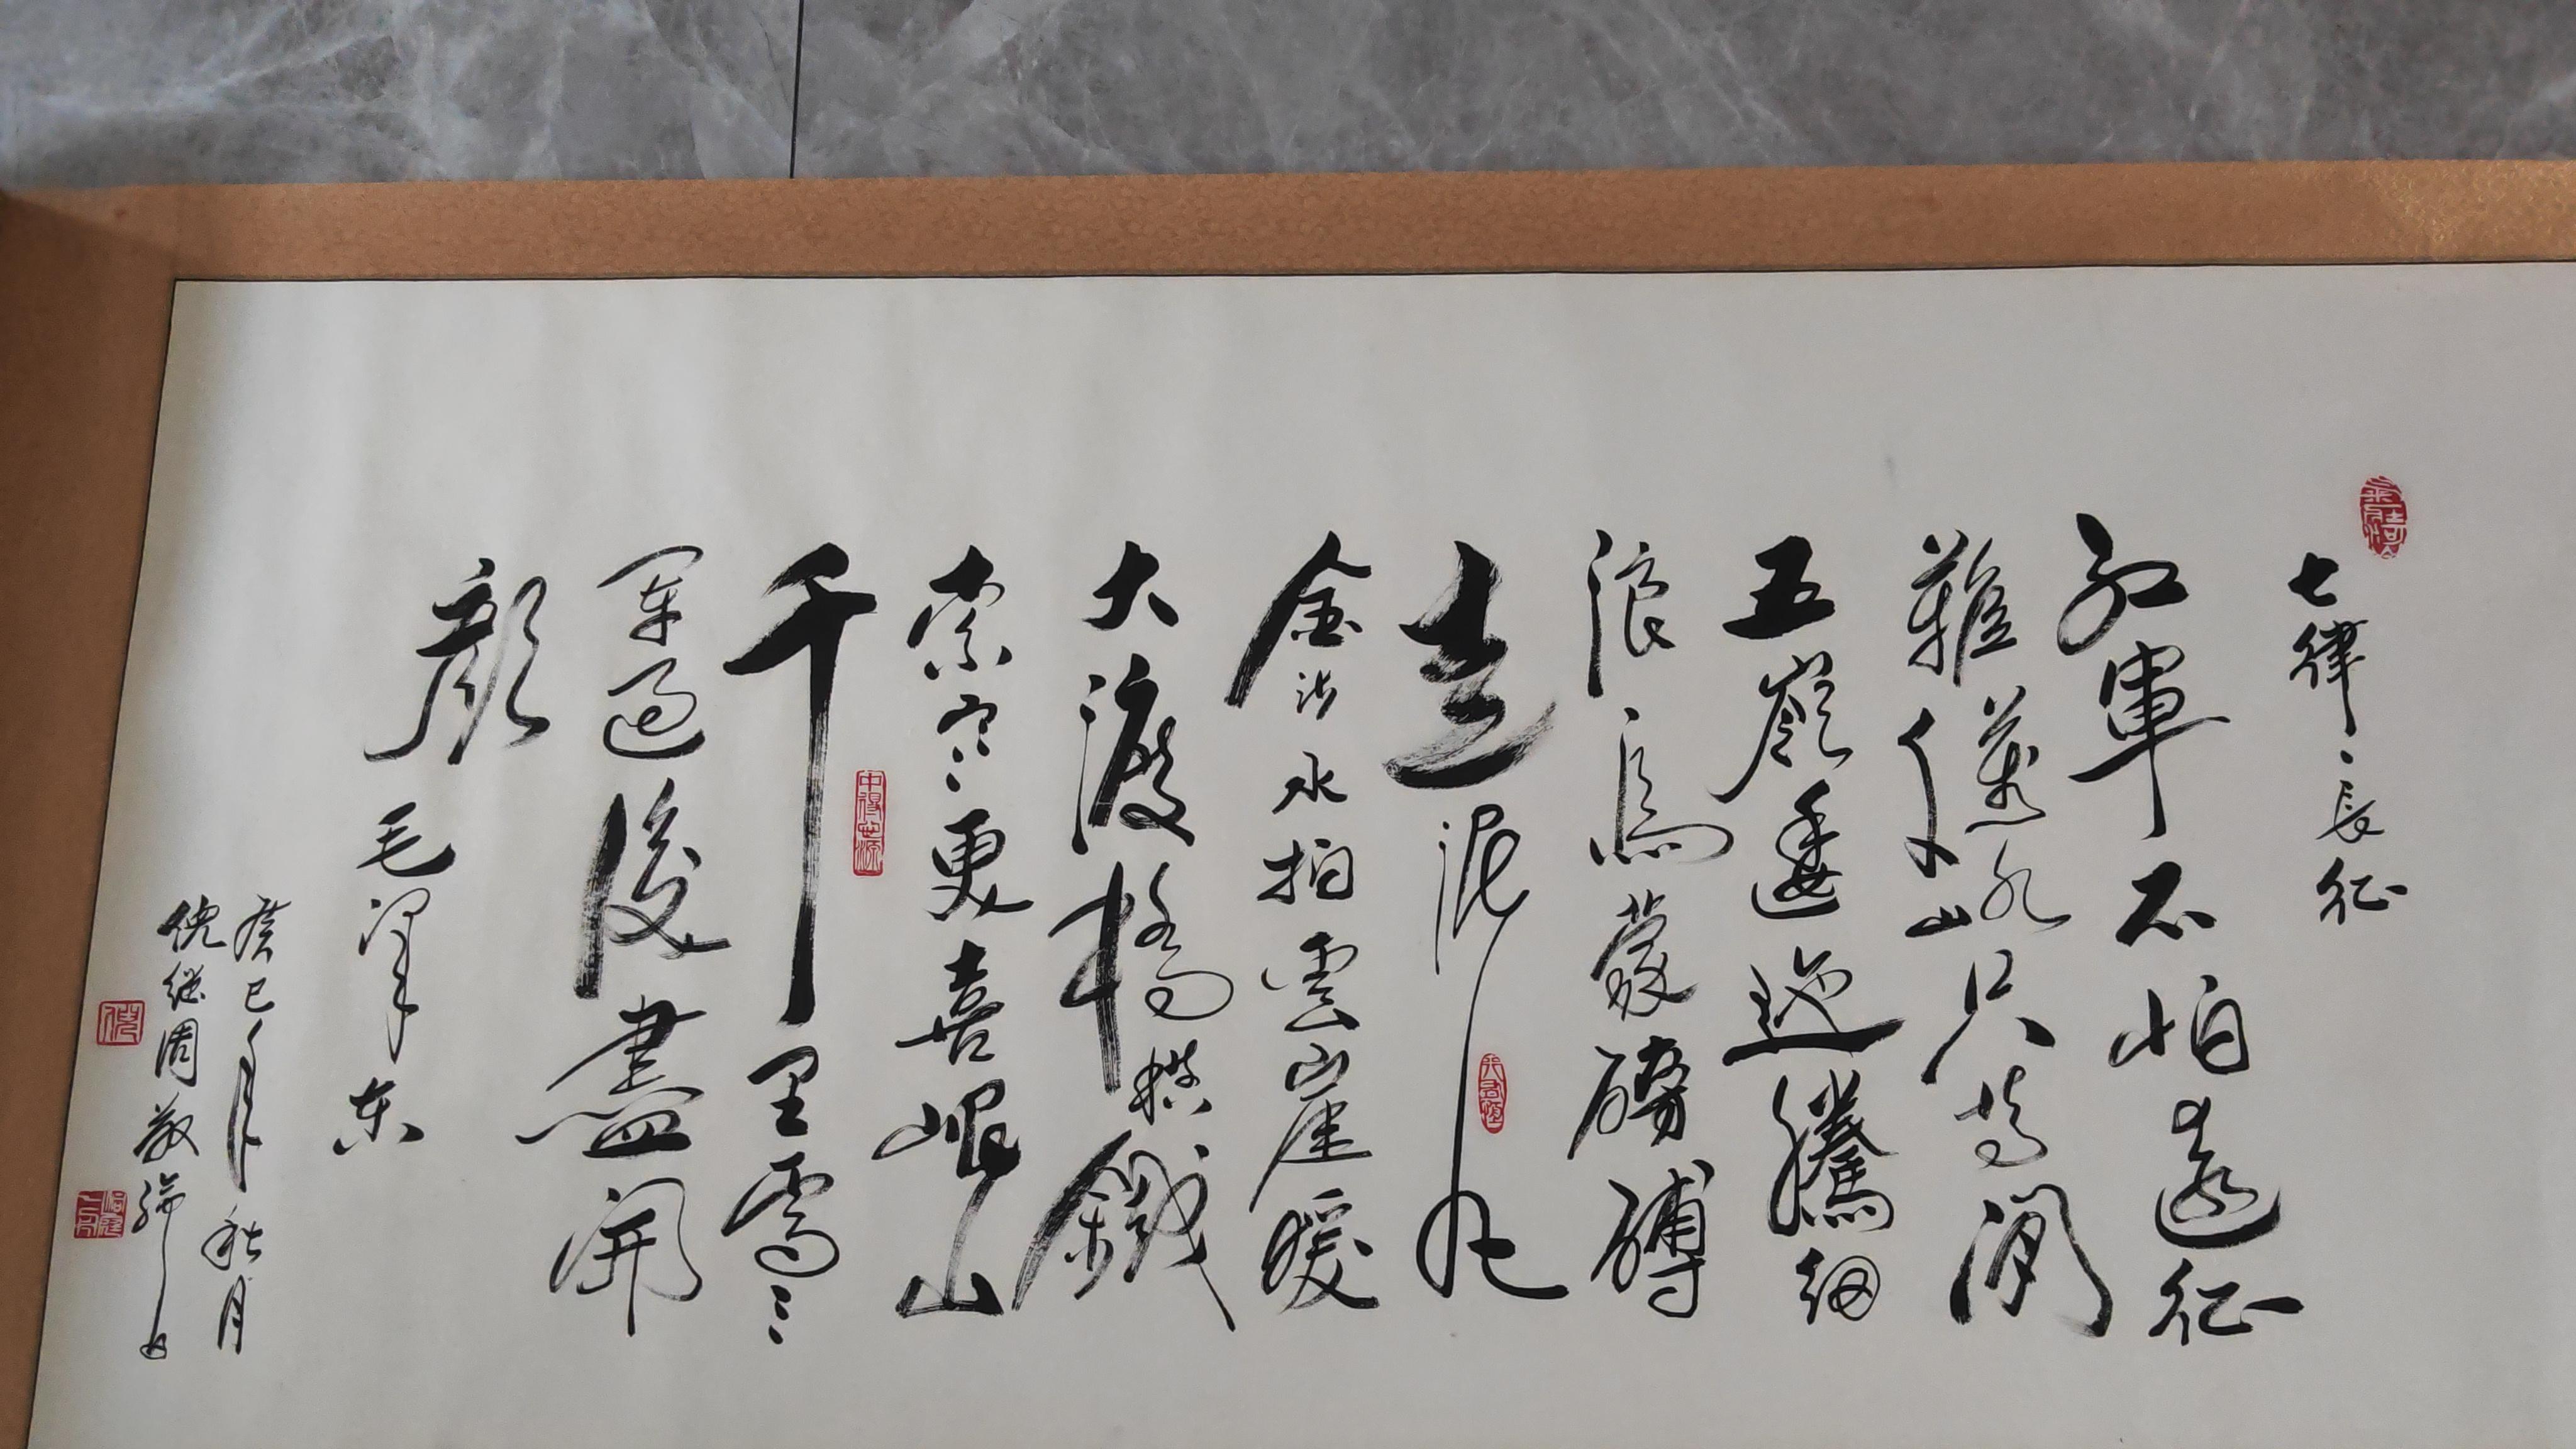 七律、長征
紅軍不怕遠征
難萬水千山只等閒
五嶺逶迤騰細
浪烏蒙磅礴
走泥丸
金沙水拍雲崖暖
大渡橋橫鐵
索寒更喜岷山
千里雪三
軍過後盡開
顏
毛澤東
癸巳年秋月
倪继周敬
中得心源
倪